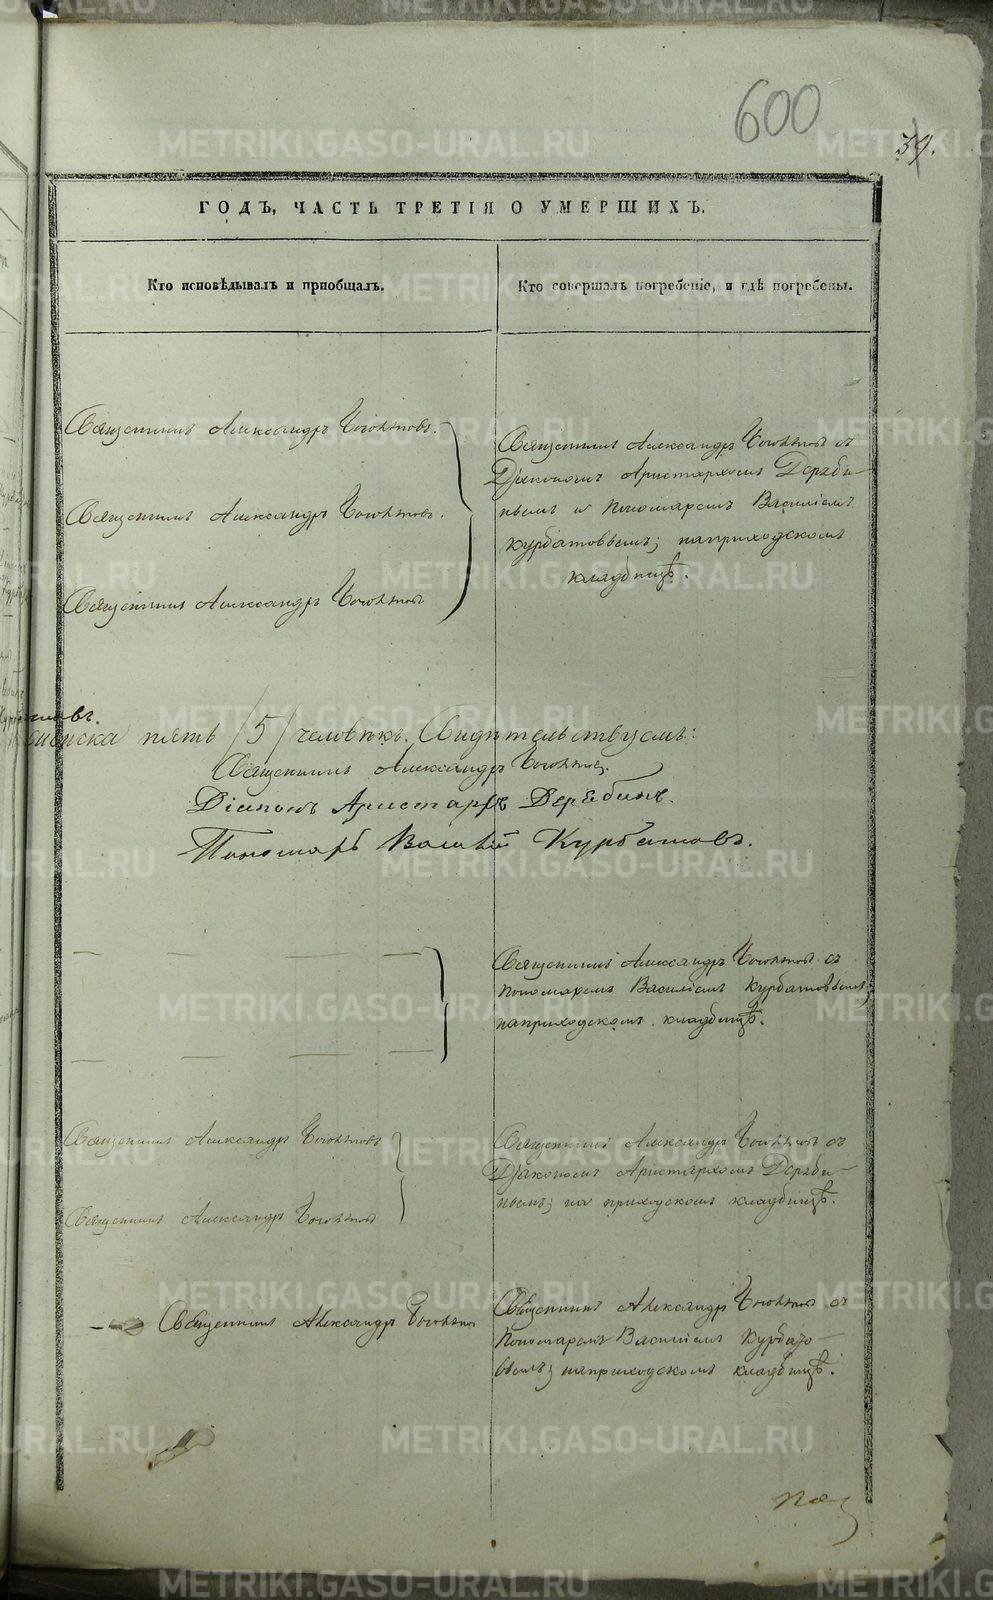 600
39.
ГОДЪ, ЧАСТЬ ТРЕТІЯ О УМЕРШИХЪ.
Кто исповѣдывалъ и пріобщалъ.
Кто совершалъ погребеніе, и гдѣ погребены.
Священникъ Александръ
Священникъ Александръ
Священникъ Александръ
Священникъ Александръ съ
Діакономъ Аристархомъ Деряби-
нымъ и Пономаремъ Василіемъ
Курбатовымъ; на приходскомъ
кладбищѣ.
пять /5/ человѣкъ. Свидѣтельствуемъ:
Священникъ Александръ
Діаконъ Аристархъ Дерябинъ.
Пономарь Василій Курбатовъ.
Священникъ Александръ съ
Пономаремъ Василіемъ Курбатовымъ,
на приходскомъ кладбищѣ.
Священникъ Александръ
Священникъ Александръ
Священникъ Александръ съ
Діакономъ Аристархомъ Деряби-
нымъ; на приходскомъ кладбищѣ.
Священникъ Александръ
Священникъ Александръ съ
Пономаремъ Василіемъ Курбато-
вымъ; на приходскомъ кладбищѣ.
METRIKI.GASO-URAL.RU